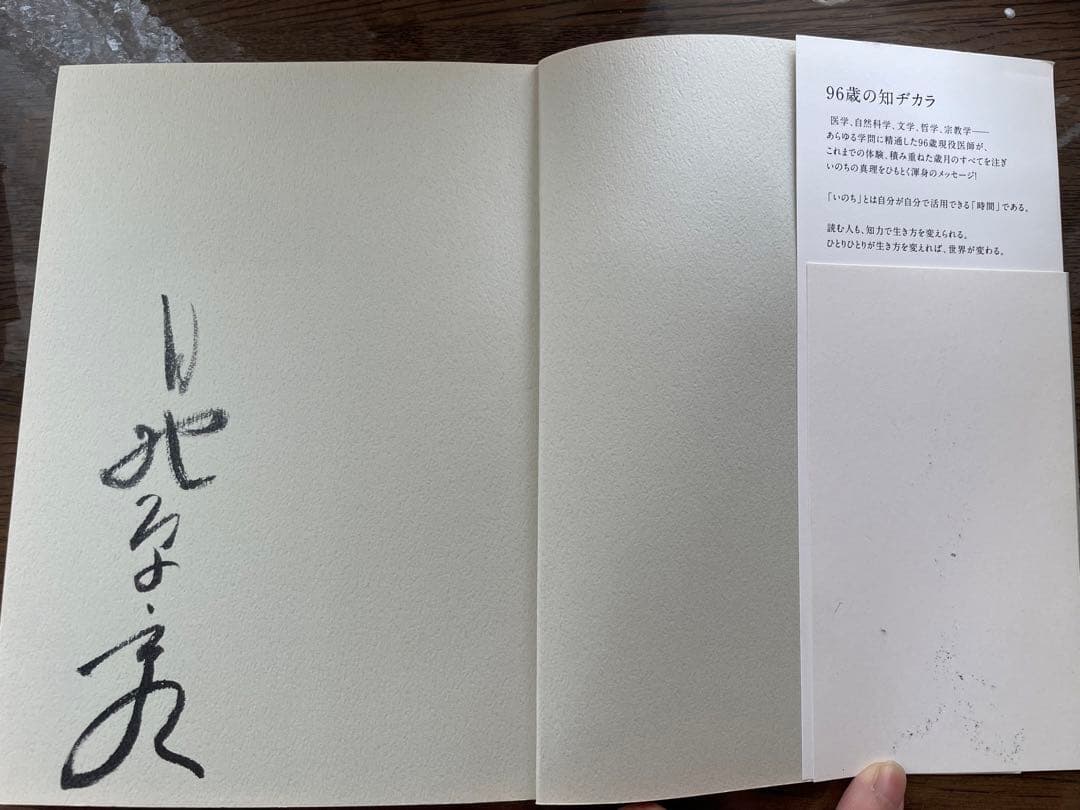 96歳の知ヂカラ
医学、自然科学、文学、哲学、宗教学――
あらゆる学問に精通した96歳現役医師が、
これまでの体験、積み重ねた歳月のすべてを注ぎ
いのちの真理をひもとく渾身のメッセージ!
「いのち」とは自分が自分で活用できる「時間」である。
読む人も、知力で生き方を変えられる。
ひとりひとりが生き方を変えれば、世界が変わる。